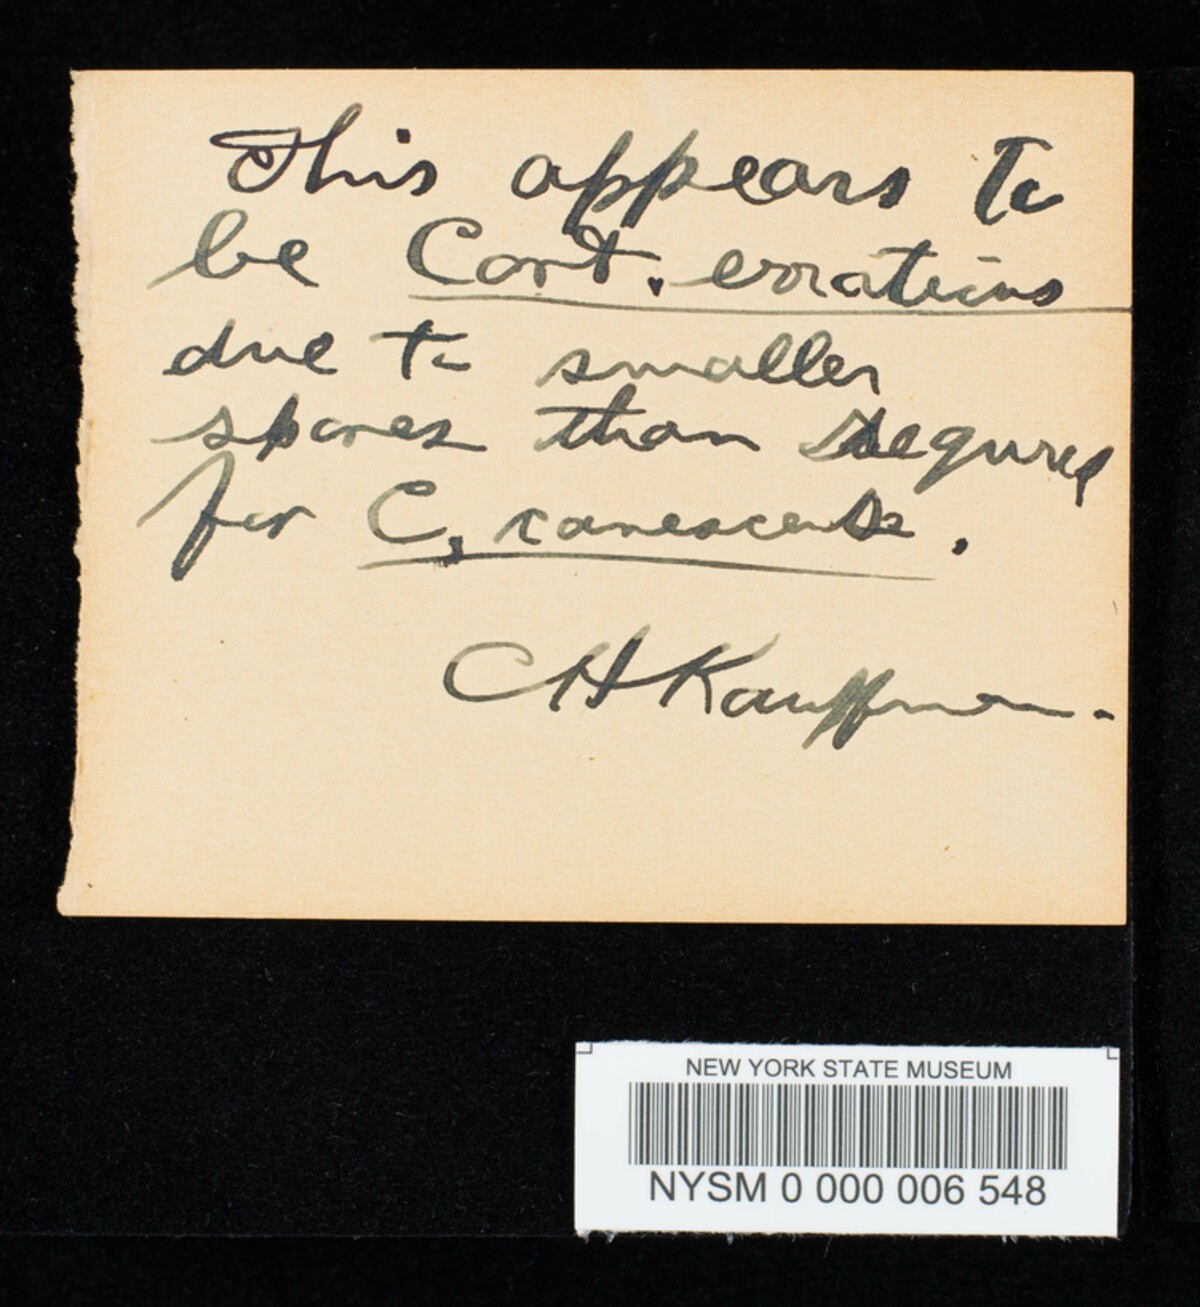 This appears to
be Cort. erraticus
due to smaller
spores than
for C. canescens.
CHKauffman.
NEW YORK STATE MUSEUM
NYSM 0 000 006 548